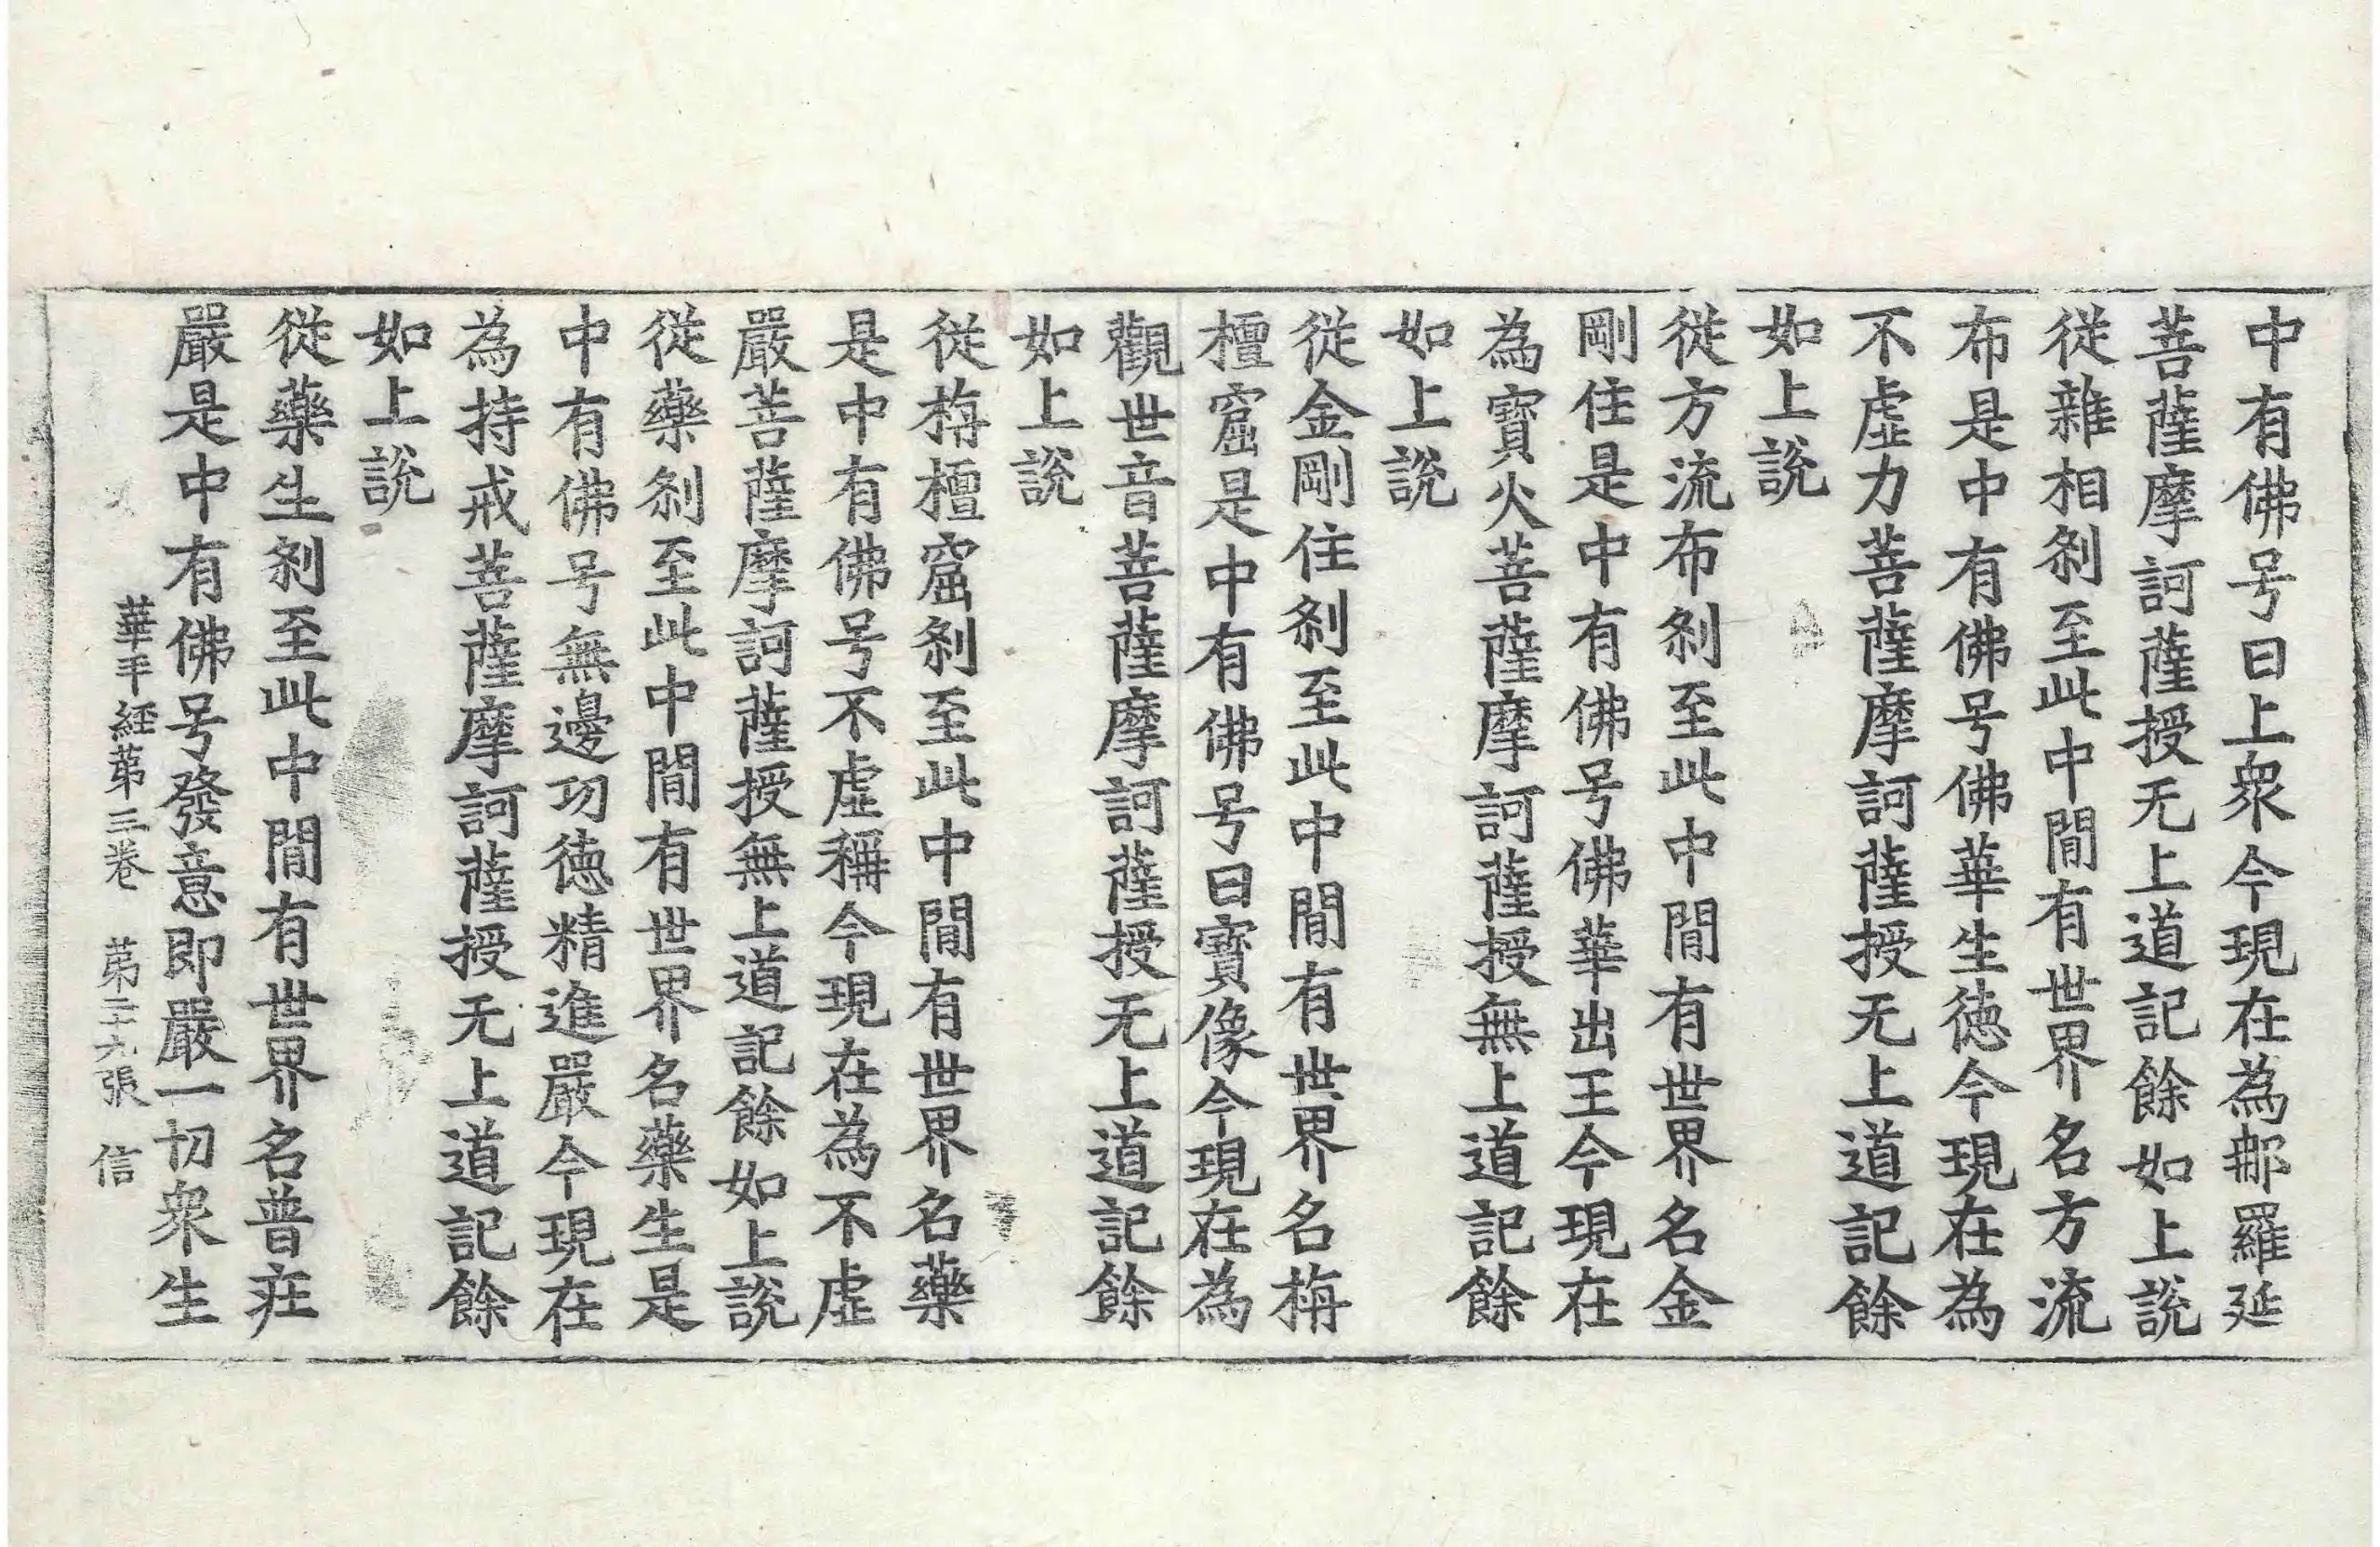 中有佛号曰上衆今現在為那羅延
菩薩摩訶薩授无上道記餘如上說
従雜相刹至此中閒有世界名方流
布是中有佛号佛華生徳今現在為
不虛力菩薩摩訶薩授无上道記餘
如上說
従方流布刹至此中閒有世界名金
剛住是中有佛号佛華出王今現在
為寶火菩薩摩訶薩授無上道記餘
如上說
従金剛住刹至此中閒有世界名栴
檀窟是中有佛号曰寶像今現在為
觀世音菩薩摩訶薩授无上道記餘
如上說
従栴檀窟刹至此中閒有世界名藥
是中有佛号不虛稱今現在為不虛
嚴菩薩摩訶薩授無上道記餘如上說
従藥刹至此中閒有世界名藥生是
中有佛号無邊功徳精進嚴今現在
為持戒菩薩摩訶薩授无上道記餘
如上說
従藥生刹至此中閒有世界名普疘
嚴是中有佛号發意即嚴一切衆生
華手経苐三卷 苐二十九張 信